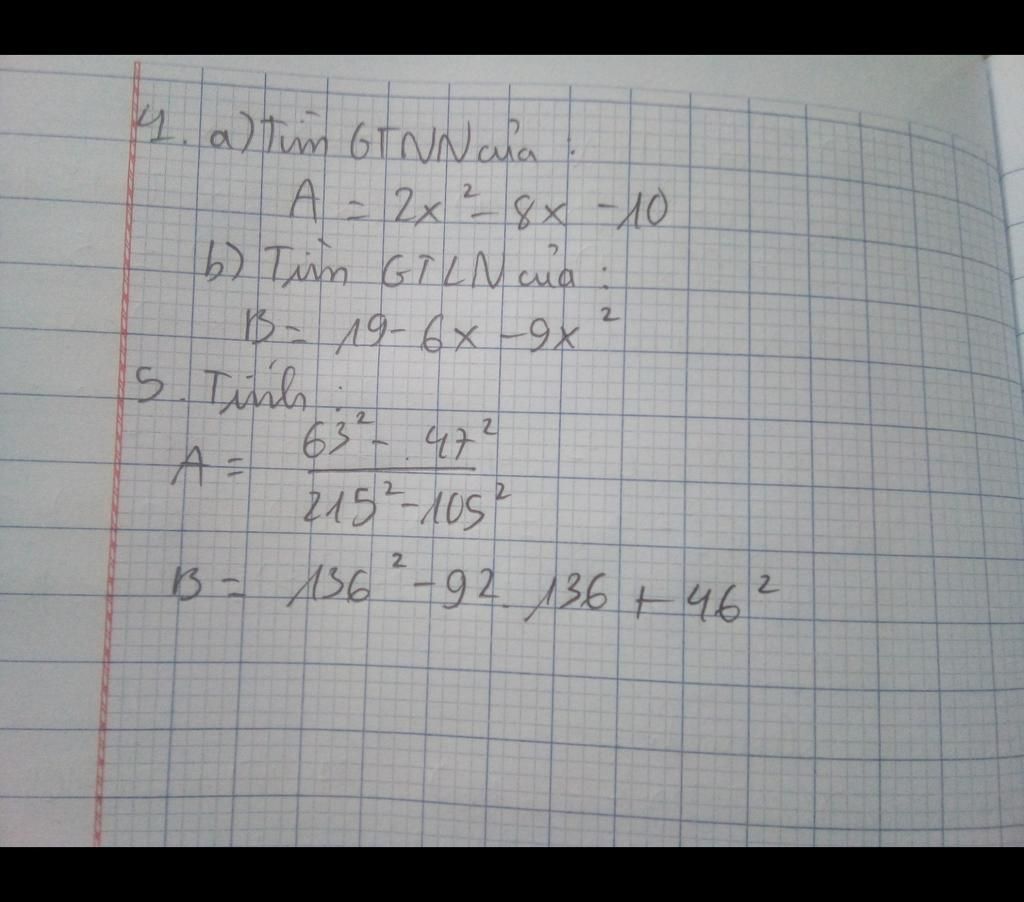 4. a) Tìm GTNN của :
A = 2x² - 8x - 10
b) Tìm GTLN của :
B = 19 - 6x - 9x²
5. Tính :
A = \frac{63² - 47²}{215² - 105²}
B = 136² - 92 . 136 + 46²